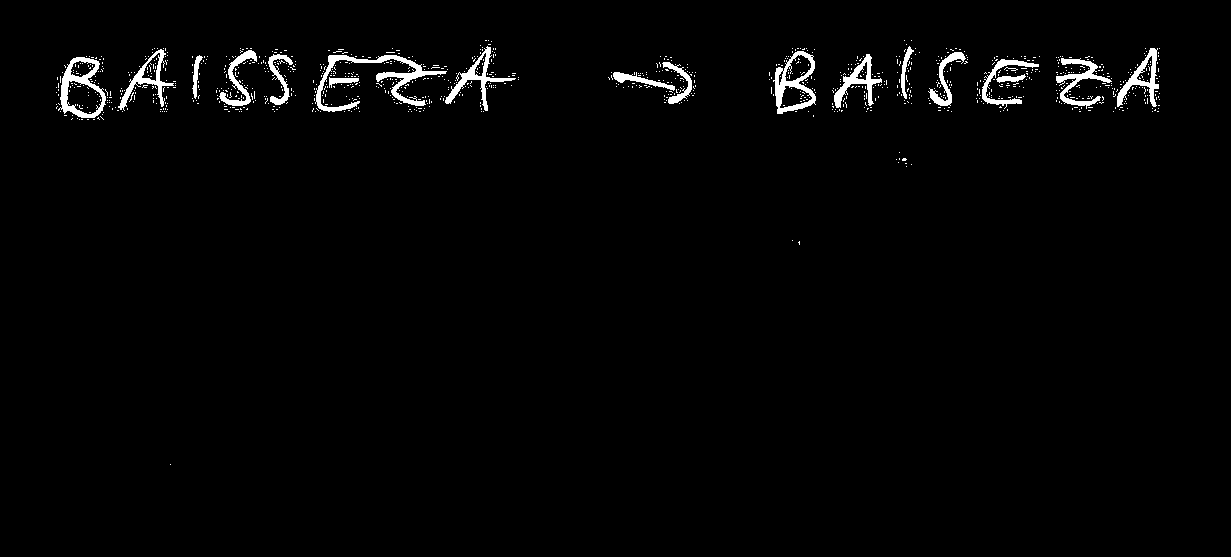 BAISSEZA → BAISEZA